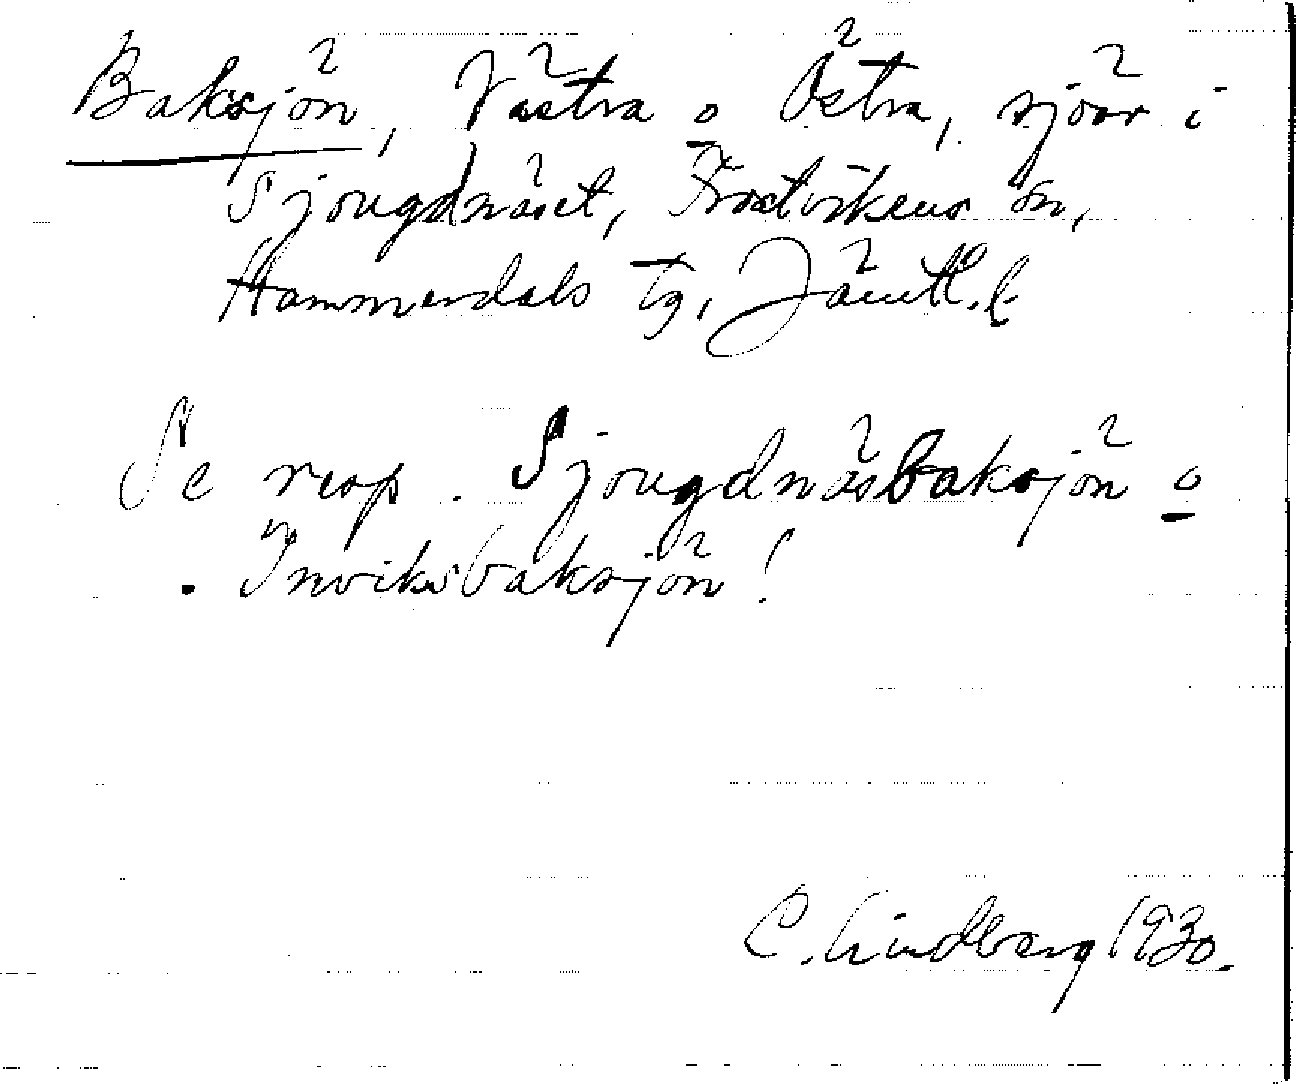 Baksjön, Västra o Östra, sjöar i
Sjougdnäset, Frostvikens sn,
Hammerdals tg, Jämtl. l.
Se resp. Sjougdnäsbaksjön o
. Inviksbaksjön!
C. Lindberg 1930.